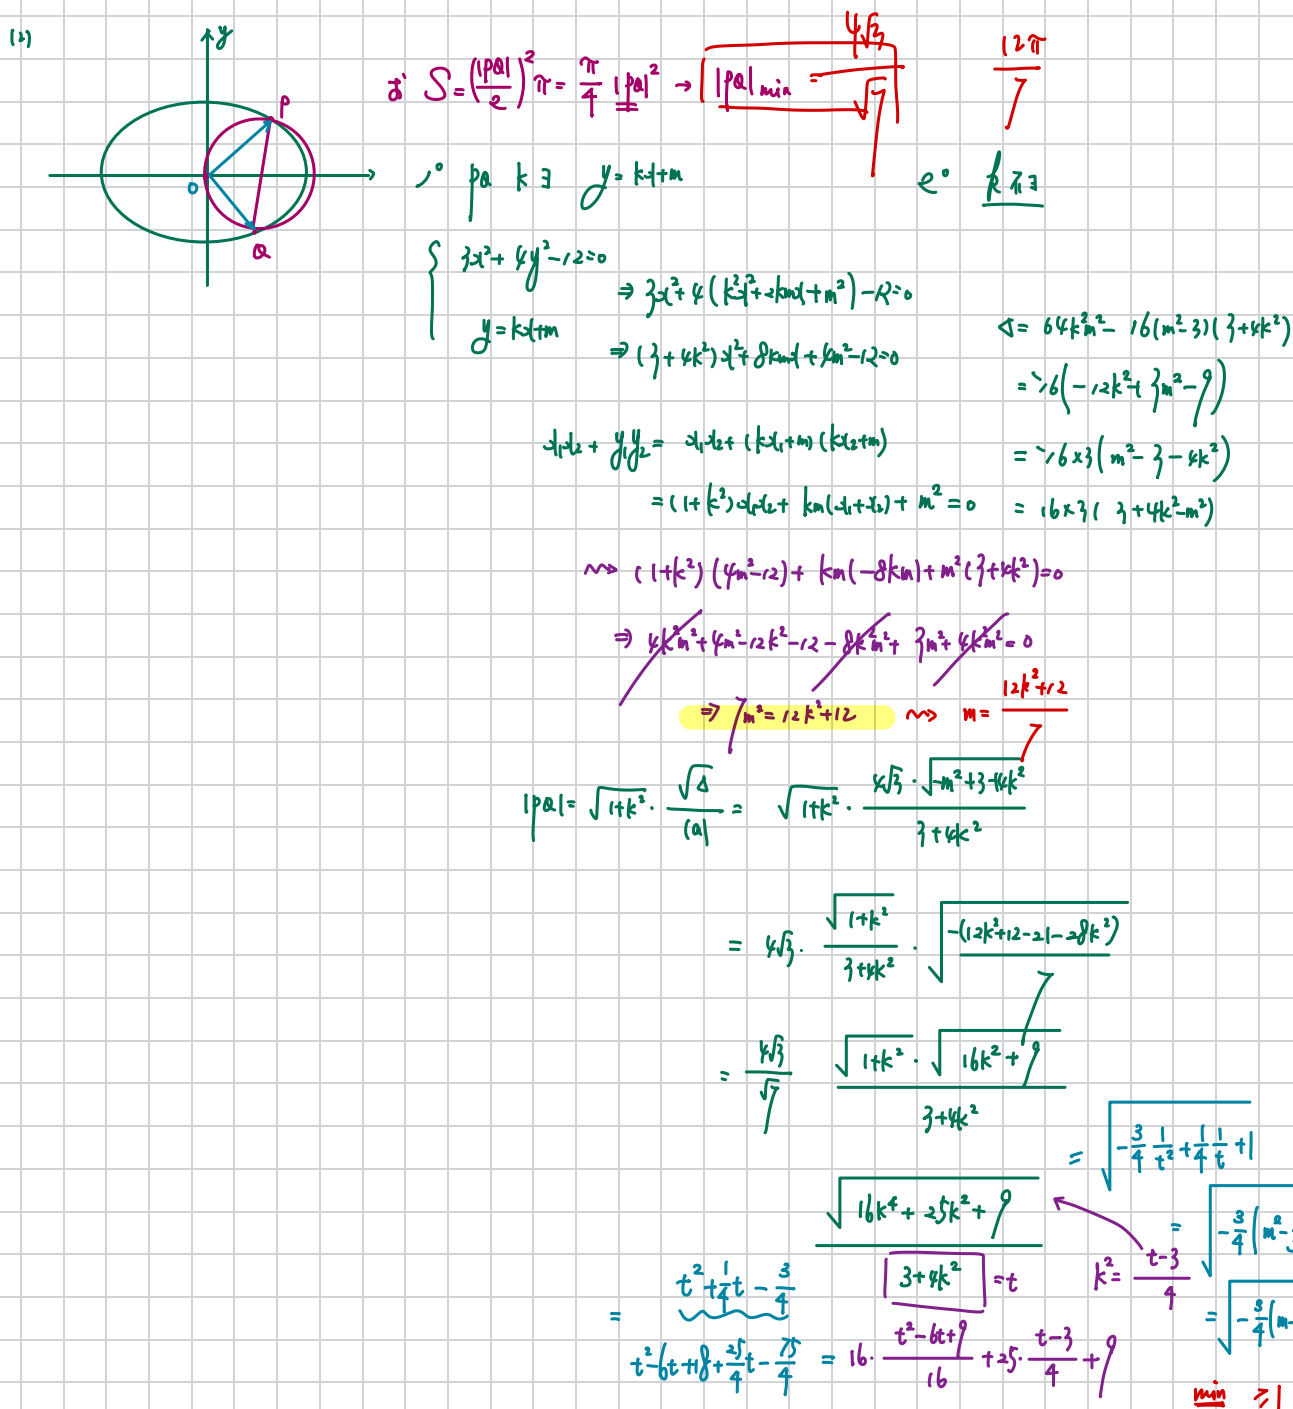 (2)
y
P
O
Q
S = (|PQ|/2)²π = π/4 |PQ|² → |PQ|min = 4√3/√7
12π/7
1° PQ k∃ y = kx+m
2° k不∃
3x²+4y²-12=0
y=kx+m
⇒ 3x²+4(k²x²+2kmx+m²)-12=0
⇒ (3+4k²)x²+8kmx+4m²-12=0
Δ= 64k²m²-16(m²-3)(3+4k²)
= -16(-12k²+3m²-9)
= -16×3(m²-3-4k²)
= 16×3(3+4k²-m²)
x₁x₂+y₁y₂= x₁x₂+(kx₁+m)(kx₂+m)
=(1+k²)x₁x₂+km(x₁+x₂)+m²=0
(1+k²)(4m²-12)+km(-8km)+m²(3+4k²)=0
⇒ 4k²m²+4m²-12k²-12-8k²m²+3m²+4k²m²=0
⇒ 7m²=12k²+12 ⇝ m=(12k²+12)/7
|PQ|=√(1+k²)·√Δ/|a| = √(1+k²)·4√3·√(-m²+3+4k²)/(3+4k²)
= 4√3·√(1+k²)/(3+4k²)·√(-(12k²+12-21-28k²)/7)
= 4√3/√7 √(1+k²)·√(16k²+9)/(3+4k²)
√(16k⁴+25k²+9)/(3+4k²) =t k²=(t-3)/4
= √(-3/4 1/t²+1/4 1/t+1)
= √(-3/4(m²-
= √(-3/4(m-
= t²+1/4t-3/4
t²-6t+18+25/4t-75/4 = 16·(t²-6t+9)/16+25·(t-3)/4+9
min ≥1